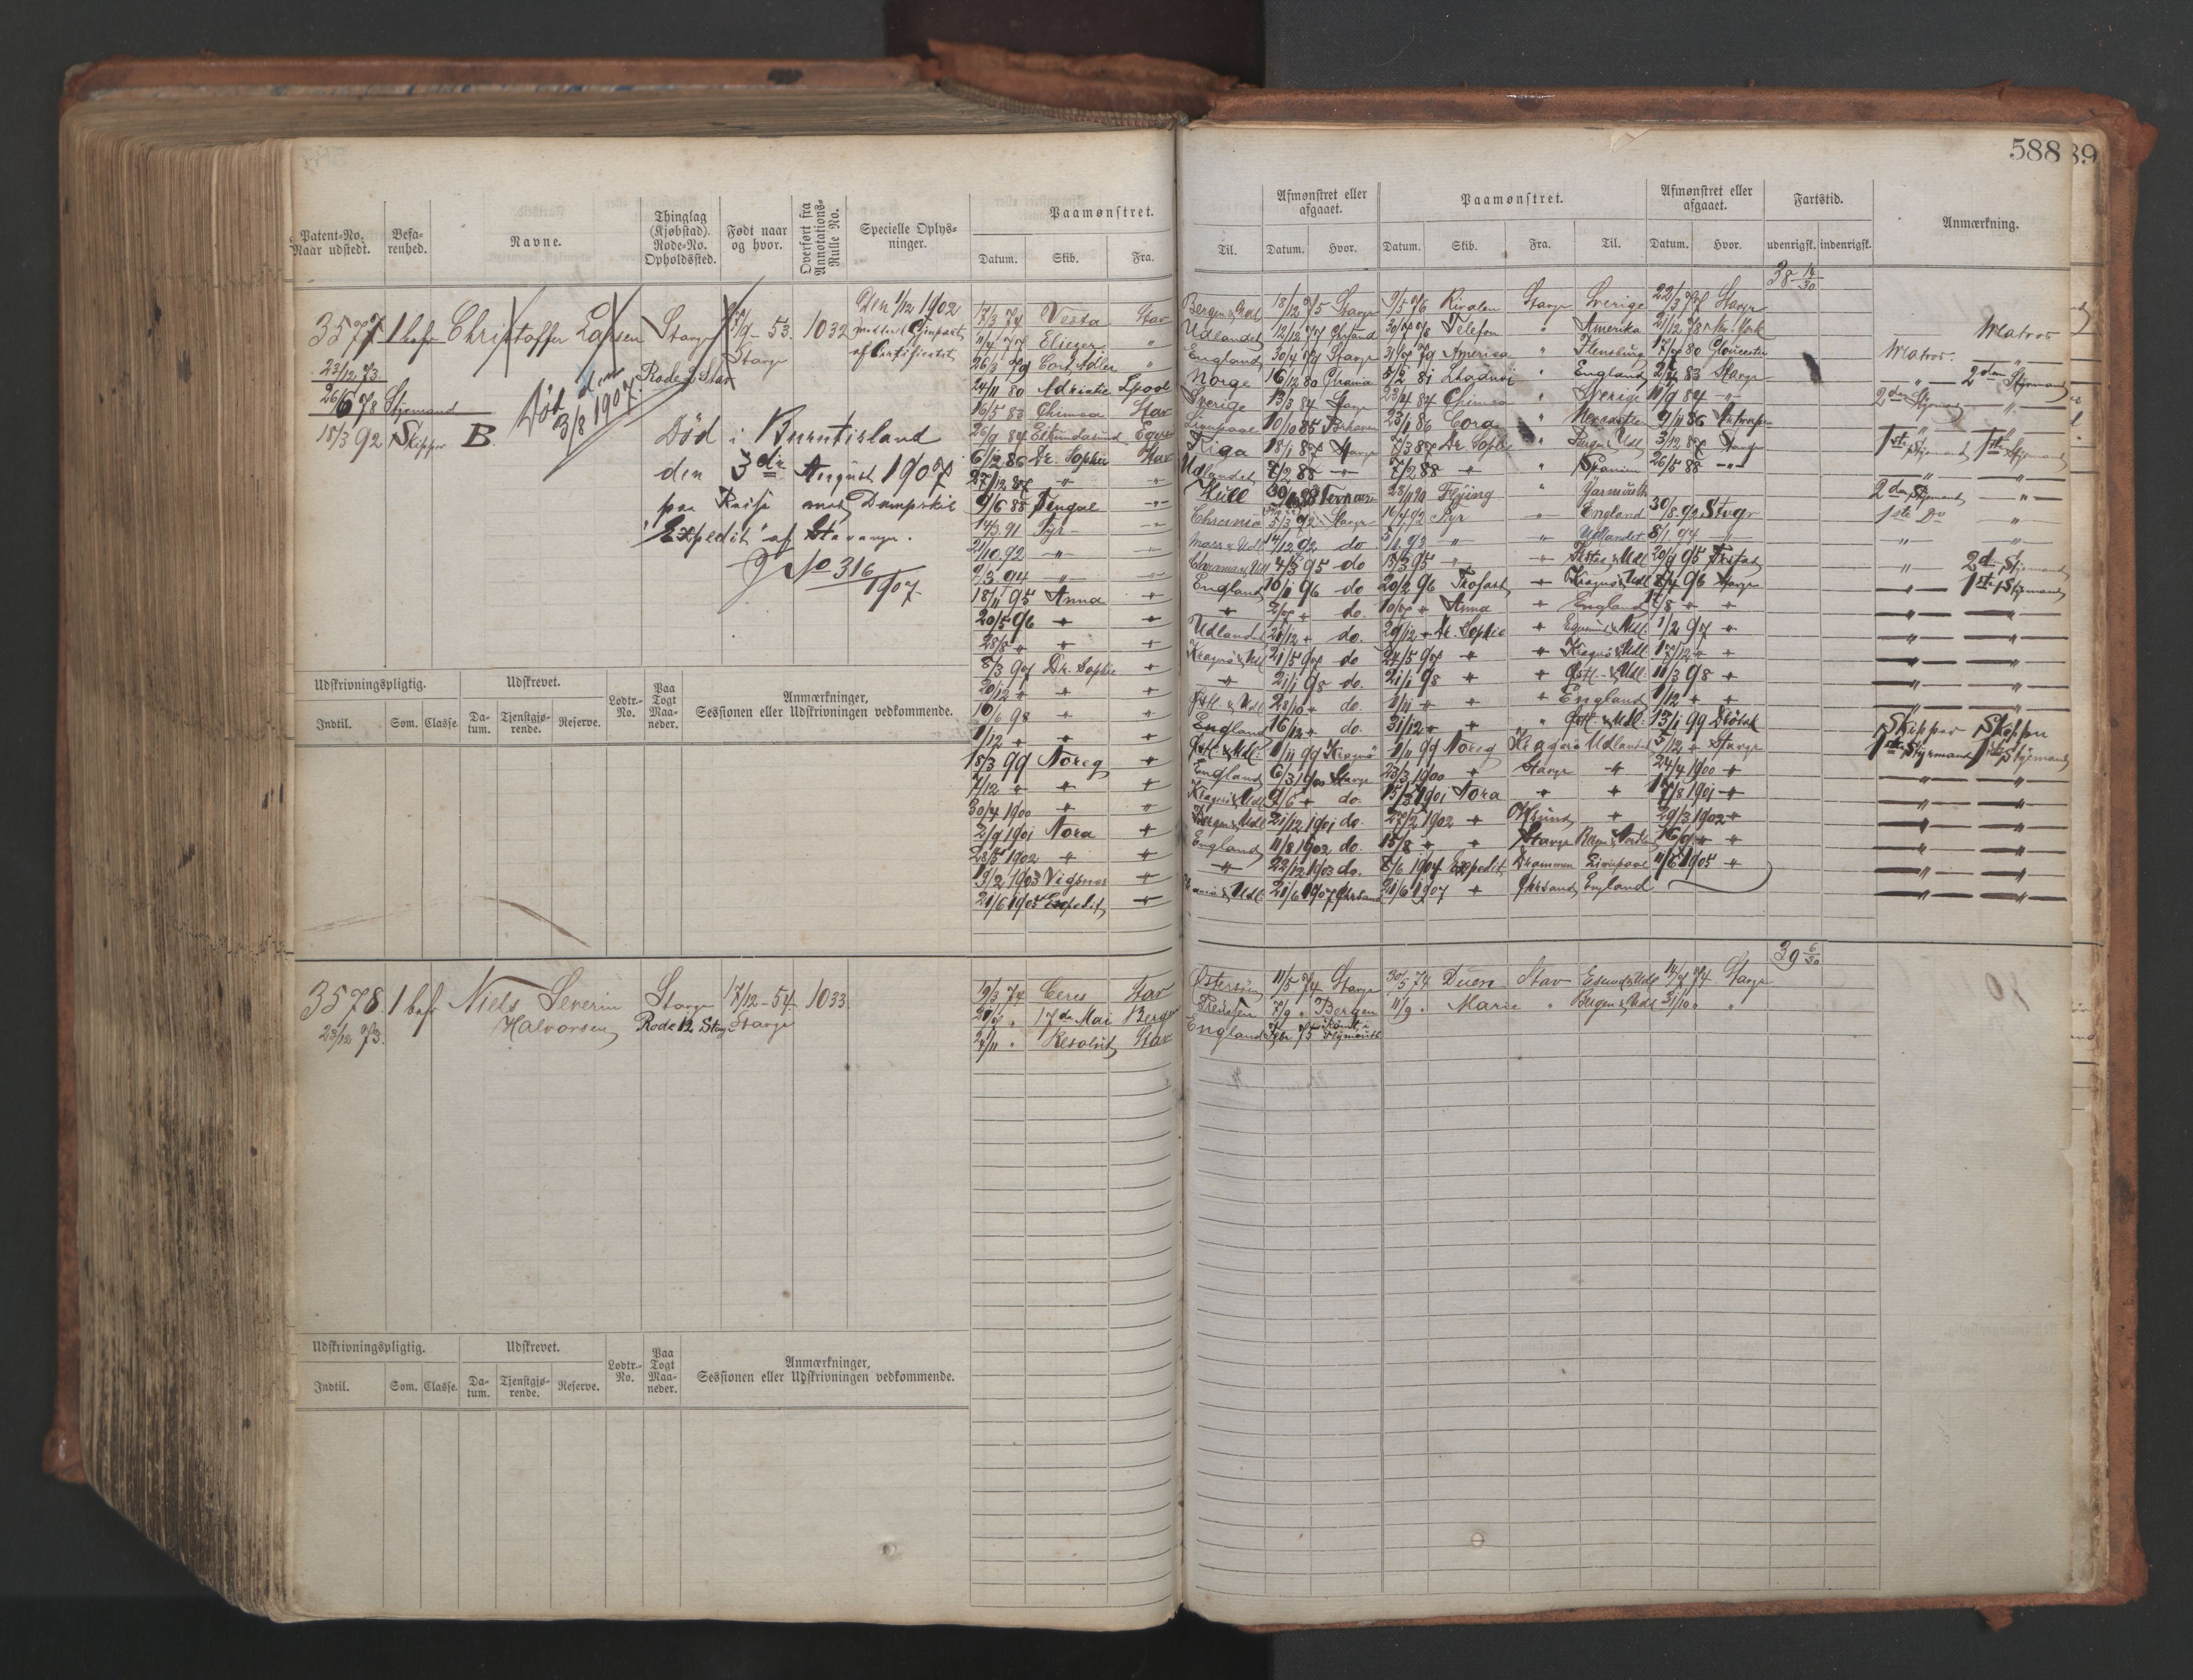 588
89
Patent-No. Naar udstedt.
Befarenhed.
Navne.
Thinglag (Kjøbstad). Rode-No. Opholdssted.
Født naar og hvor.
Overført fra Annotations-Rulle No.
Specielle Oplysninger.
Paamønstret.
Datum. Skib. Fra.
Til.
Afmønstret eller afgaaet.
Datum. Hvor.
Paamønstret.
Datum. Skib. Fra. Til.
Afmønstret eller afgaaet.
Datum. Hvor.
Fartstid.
udenrigsk. indenrigsk.
Anmærkning.
3577 1 bef Christoffer Larsen Stavgr 53. 1032
Den 1/12 1902
af Certifikatet
Stavgr
23/12 73.
26/6 78 Styrmand
15/3 92 Skipper B.
Død den 3/8 1907.
Død i Burntisland
den 3die August 1907
paa Reise med Dampskib
"Expedit" af Stavanger.
J No 316/1907
38 14/30
17/3 74 Vesta Stav
11/4 77 Eliezer "
26/3 79 Cort Adler "
24/11 80 Adriatic Lpool
16/5 83 Chimæa Stav
26/9 84 Ekundasund Egers
6/12 86 Dr. Sophie Stav
27/12 87 " "
9/6 88 Fingal "
14/3 91 Tyr "
21/10 92 " "
9/3 94 " "
18/11 95 Anna "
20/5 96 " "
28/8 " " "
8/3 97 Dr. Sophie "
20/12 " " "
10/6 98 " "
1/12 " " "
18/3 99 Noreg "
7/12 " " "
30/4 1900 " "
2/9 1901 Nora "
28/5 1902 " "
19/2 1903 Vigsnæs "
21/6 1905 Expedit "
Bergen & Udl 18/12 75 Stavgr 9/5 76 Rivalen Stavgr Sverige 22/3 77 Stavgr
Udlandet 12/12 77 Chrsand 30/7 78 Telefon " Amerika 21/12 78 New York Matros
England 30/4 79 Stavgr 31/7 79 America " Flensburg 17/7 80 Gloucester Matros. "
Norge 16/12 80 Chrania 5/2 81 " England 83 Stavgr " 2den Styrmand
Sverige 13/3 84 Stavgr 23/4 84 Chimæa " Sverige 10/9 84 " 2den Styrmand "
Liverpool 10/10 85 23/1 86 Cora " Newcastle 9/11 86
Riga 18/1 87 Stavgr 7/3 87 Dr. Sophie " Bergen & Udl 3/12 87 Stavgr 1ste Styrmand 1ste Styrmand
Udlandet 7/2 88 " 7/2 88 " " Spanien 26/5 88 " " "
Hull 28/11 90 Flÿing " Yarmouth 2den Styrmand "
Chrania 5/3 92 Stavgr 16/4 92 Tyr " England 30/8 92 Stvgr 1ste Do "
14/12 92 do 5/1 93 " " Udlandet 8/1 94 " " "
Chrania & Udl 4/3 95 do 15/3 95 " " & Udl 20/9 95 " 2d Styrmand
England 10/1 96 do 20/2 96 Trofast " Kragerø & Udl 96 Stavgr " 1ste Styrmand
" 2/7 " do. 10/7 " Anna " England 17/8 " " " "
Udlandet 21/12 " do. 29/12 " Dr. Sophie " & Udl. 1/2 97 " " "
Kragerø & Udl 21/5 97 do 24/5 97 " " Kragerø & Udl 17/12 " " " "
" 21/1 98 do. 21/1 98 " " Østl. & Udl. 11/3 98 " " "
Østl. & Udl 28/10 " do. 1/11 " " " England 1/12 " " " "
England 16/12 " do. 31/12 " " " Østl. & Udl. 13/1 99 Drøbak Skipper Skipper
Østl. & Udl. 1/11 99 Kragerø 1/11 99 Noreg Kragerø Udlandet 5/12 " Stavgr 1ste Styrmand 1ste Styrmand
England 6/3 1900 Stavgr 23/3 1900 " Stavgr " 24/4 1900 " " "
Kragerø & Udl 9/6 " do. 15/3 1901 Nora " " 17/8 1901 " " "
Bergen & Udl 21/12 1901 do. 27/2 1902 " " 29/3 1902 " " "
England 11/8 1902 do. 15/8 " " Stavgr 16/9 " " " "
" 22/12 1903 do. 8/6 1904 Expedit Drammen Liverpool 11/6 1905 " " "
21/6 1907 Chrsand 21/6 1907 " Chrsand England " "
Udskrivningspligtig. Udskrevet. Lodtr.-No. Paa Togt Maaneder. Anmærkninger, Sessionen eller Udskrivningen vedkommende.
Indtil. Som. Classe. Datum. Tjenstgjørende. Reserve.
39 6/30
3578. 1 bef Niels Severin Stavgr 17/12 - 54. 1033.
Halvorsen Rode 12. Stavg Stavgr
23/12 73.
19/3 74 Ceres Stav Østersøen 11/5 74 Stavgr 30/5 74 Duen Stav & Udl 74 Stavgr
17de Mai Bergen Preussen 7/9 " Bergen 11/9 " Marie " Bergen & Udl 31/10 " "
24/11 " Resolut Stav England Febr 75 Rømt i Plymouth
Udskrivningspligtig. Udskrevet. Lodtr.-No. Paa Togt Maaneder. Anmærkninger, Sessionen eller Udskrivningen vedkommende.
Indtil. Som. Classe. Datum. Tjenstgjørende. Reserve.